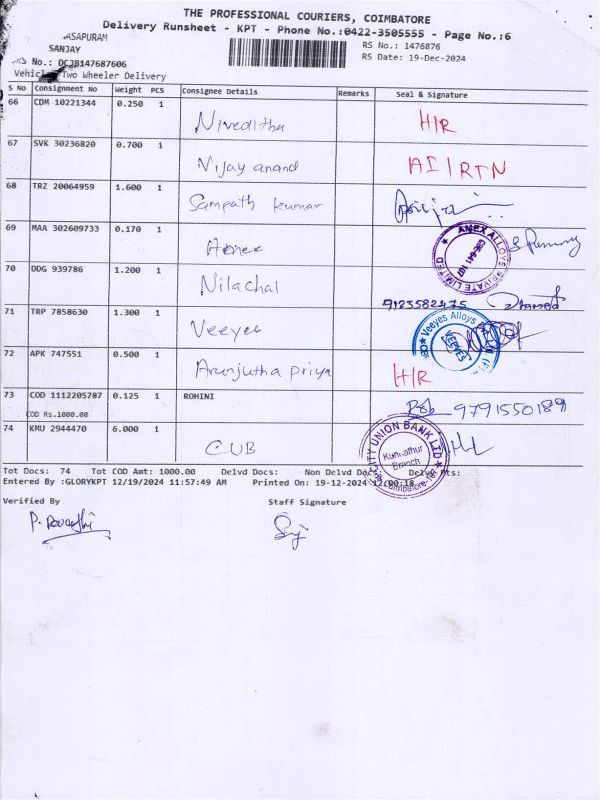 THE PROFESSIONAL COURIERS, COIMBATORE
Delivery Runsheet - KPT - Phone No.:0422-3505555 - Page No.:6
ASAPURAM
SANJAY
RS No.: 1476876
RS Date: 19-Dec-2024
No.: DCJB147687606
Two Wheeler Delivery
S No Consignment No Weight PCS Consignee Details Remarks Seal & Signature
66 CDM 10221344 0.250 1 Niveditha H/R
67 SVK 30236820 0.700 1 Vijay anand AI/RTN
68 TRZ 20064959 1.600 1 Sampath kumar
69 MAA 302609733 0.170 1 Annex
ANEX ALLOYS PRIVATE LIMITED
70 DDG 939786 1.200 1 Nilachal 9123582475
71 TRP 7858630 1.300 1 Veeyes
Veeyes Alloys
VEEYES
72 APK 747551 0.500 1 Arunjutha priya H/R
73 COD 1112205787 0.125 1 ROHINI 9791550189
COD Rs.1000.00
74 KMU 2944470 6.000 1 CUB
CITY UNION BANK LTD
Kuniyathur
Branch
Coimbatore
Tot Docs: 74 Tot COD Amt: 1000.00 Delvd Docs: Non Delvd Docs: Delvd Wts:
Entered By :GLORYKPT 12/19/2024 11:57:49 AM Printed On: 19-12-2024 12:00:18
Verified By Staff Signature